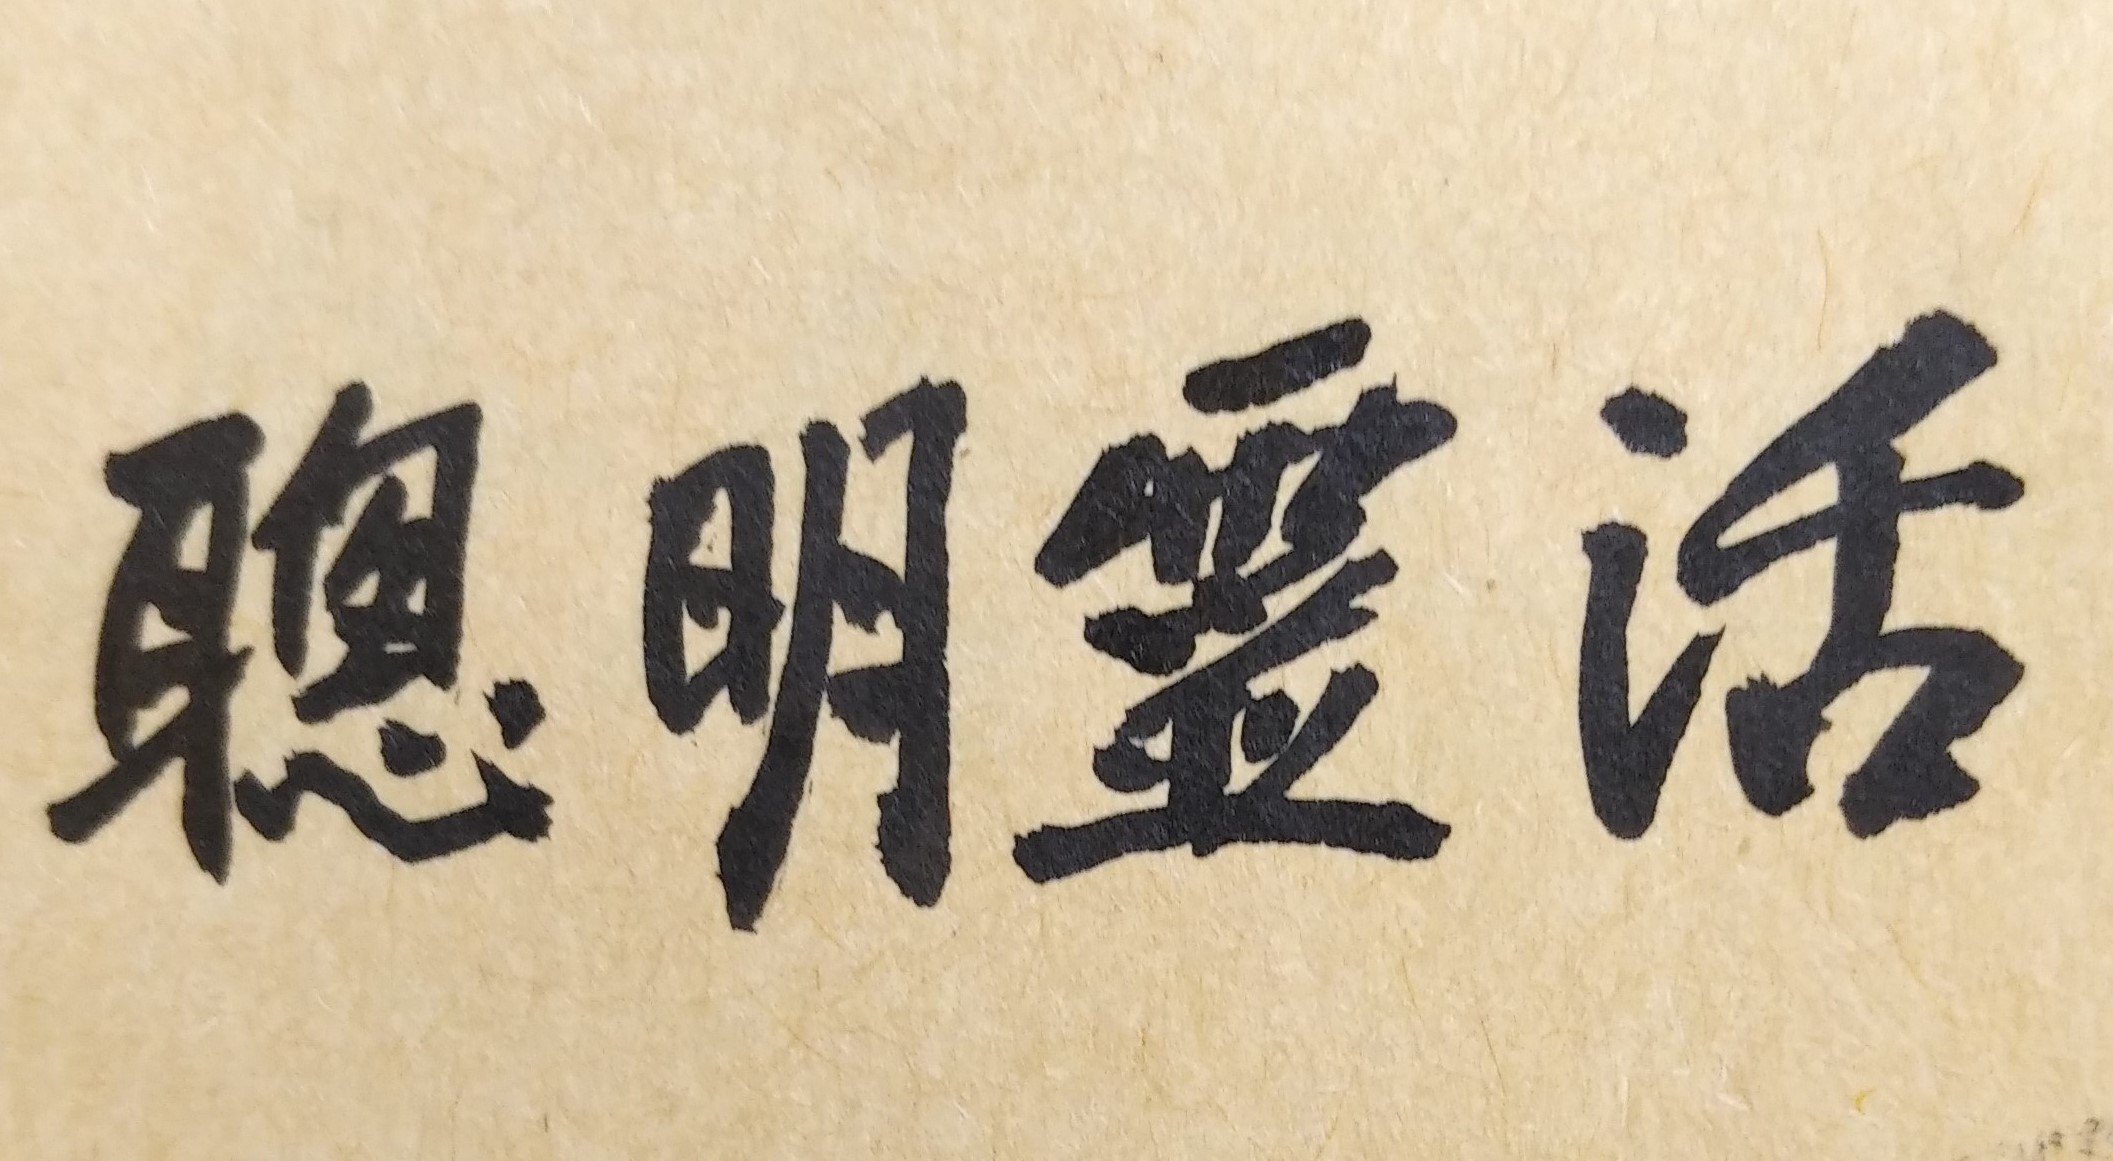 聰明靈活